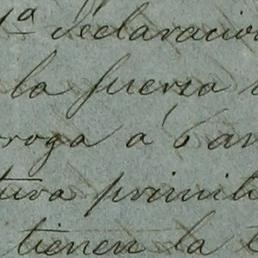 1ª declaracion
la fuerza
rroga á 6 añ
tura primit
tienen la